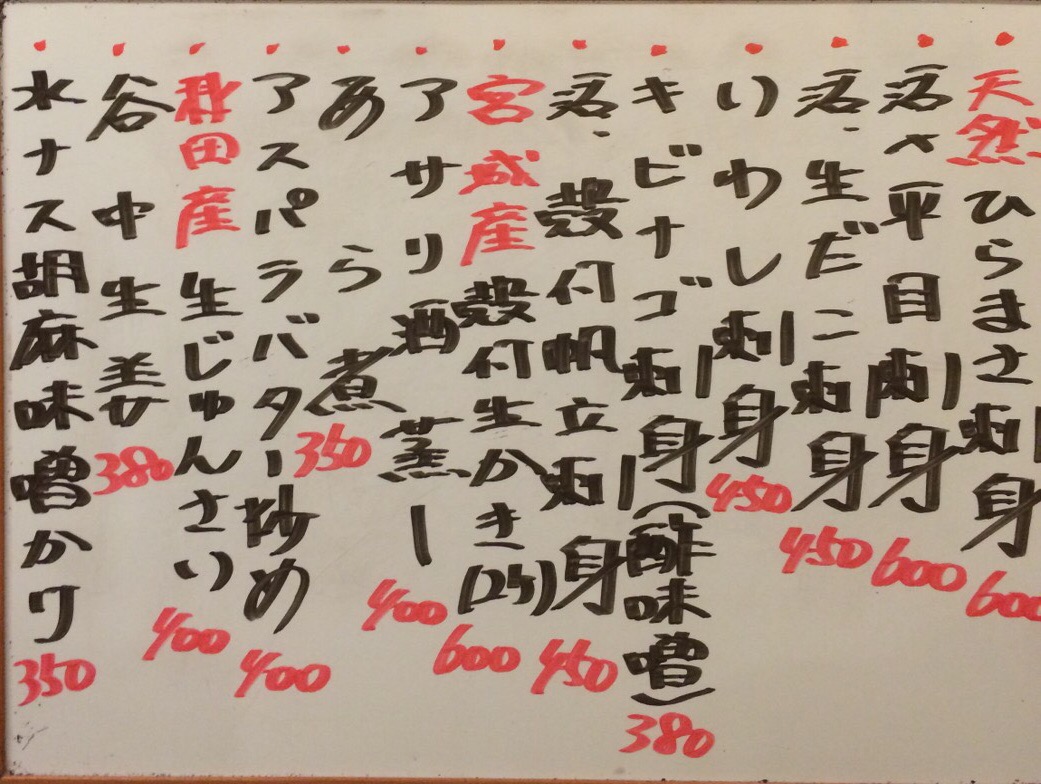 ・天然ひらまさ刺身 600
・活〆平目刺身 600
・活・生だこ刺身 450
・いわし刺身 450
・キビナゴ刺身(酢味噌) 380
・活・殻付帆立刺身 450
・宮城産殻付生かき(2ケ) 600
・アサリ酒蒸し 400
・あら煮 350
・アスパラバター炒め 400
・秋田産生じゅんさい 400
・谷中生姜 380
・水ナス胡麻味噌かけ 350